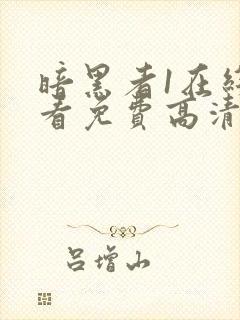 暗黑者1在线
看免费高清
吕增山